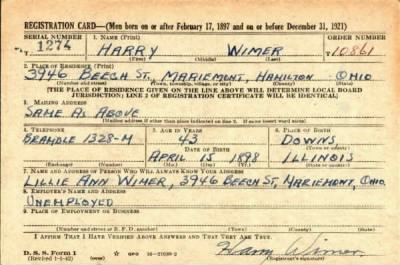 REGISTRATION CARD—(Men born on or after February 17, 1897 and on or before December 31, 1921)
SERIAL NUMBER 1. NAME (Print) ORDER NUMBER
1274 HARRY WIMER 10861
(First) (Middle) (Last)
2. PLACE OF RESIDENCE (Print)
3946 BEECH ST, MARIEMONT, HAMILTON OHIO
(Number and street) (Town, township, village, or city) (County) (State)
[THE PLACE OF RESIDENCE GIVEN ON THE LINE ABOVE WILL DETERMINE LOCAL BOARD
JURISDICTION; LINE 2 OF REGISTRATION CERTIFICATE WILL BE IDENTICAL]
3. MAILING ADDRESS
SAME AS ABOVE
[Mailing address if other than place indicated on line 2. If same insert word same]
4. TELEPHONE 5. AGE IN YEARS 6. PLACE OF BIRTH
43 DOWNS
BRAMBLE 1328-M DATE OF BIRTH (Town or county)
APRIL 15 1898 ILLINOIS
(Exchange) (Number) (Mo.) (Day) (Yr.) (State or country)
7. NAME AND ADDRESS OF PERSON WHO WILL ALWAYS KNOW YOUR ADDRESS
LILLIE ANN WIMER, 3946 BEECH ST, MARIEMONT, OHIO.
8. EMPLOYER'S NAME AND ADDRESS
UNEMPLOYED
9. PLACE OF EMPLOYMENT OR BUSINESS
(Number and street or R. F. D. number) (Town) (County) (State)
I AFFIRM THAT I HAVE VERIFIED ABOVE ANSWERS AND THAT THEY ARE TRUE.
D. S. S. Form 1
(Revised 1-1-42) (over) GPO 16—21630-2 Harry Wimer